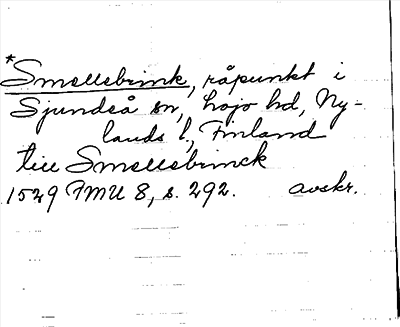 *Smellsbrink, råpunkt i
Sjundeå sn, Lojo hd, Ny-
lands l., Finland
till Smellsbrinck
1529 FMU 8, s. 292. avskr.